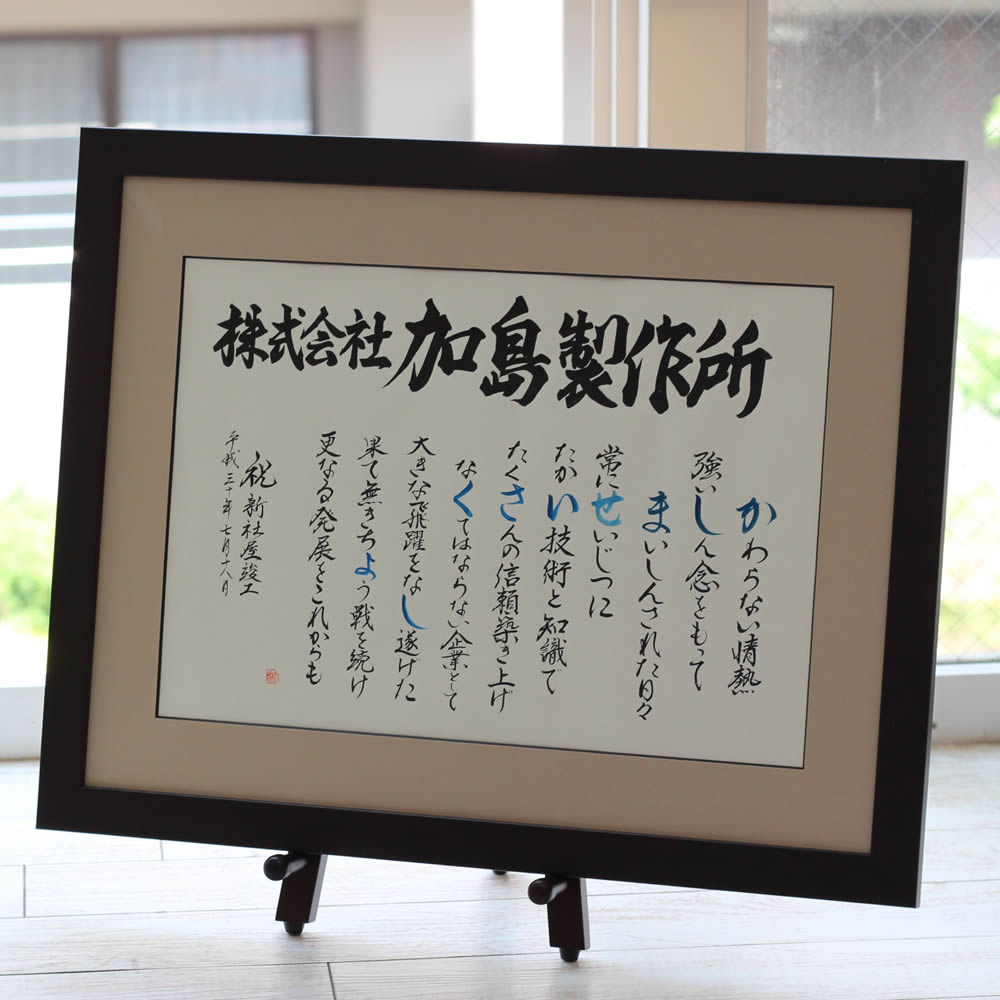 株式会社 加島製作所
かわらない情熱
強いしん念をもって
まいしんされた日々
常にせいじつに
たかい技術と知識で
たくさんの信頼築き上げ
なくてはならない企業として
大きな飛躍をなし遂げた
果て無きちょう戦を続け
更なる発展をこれからも
祝 新社屋竣工
平成三十年七月十八日